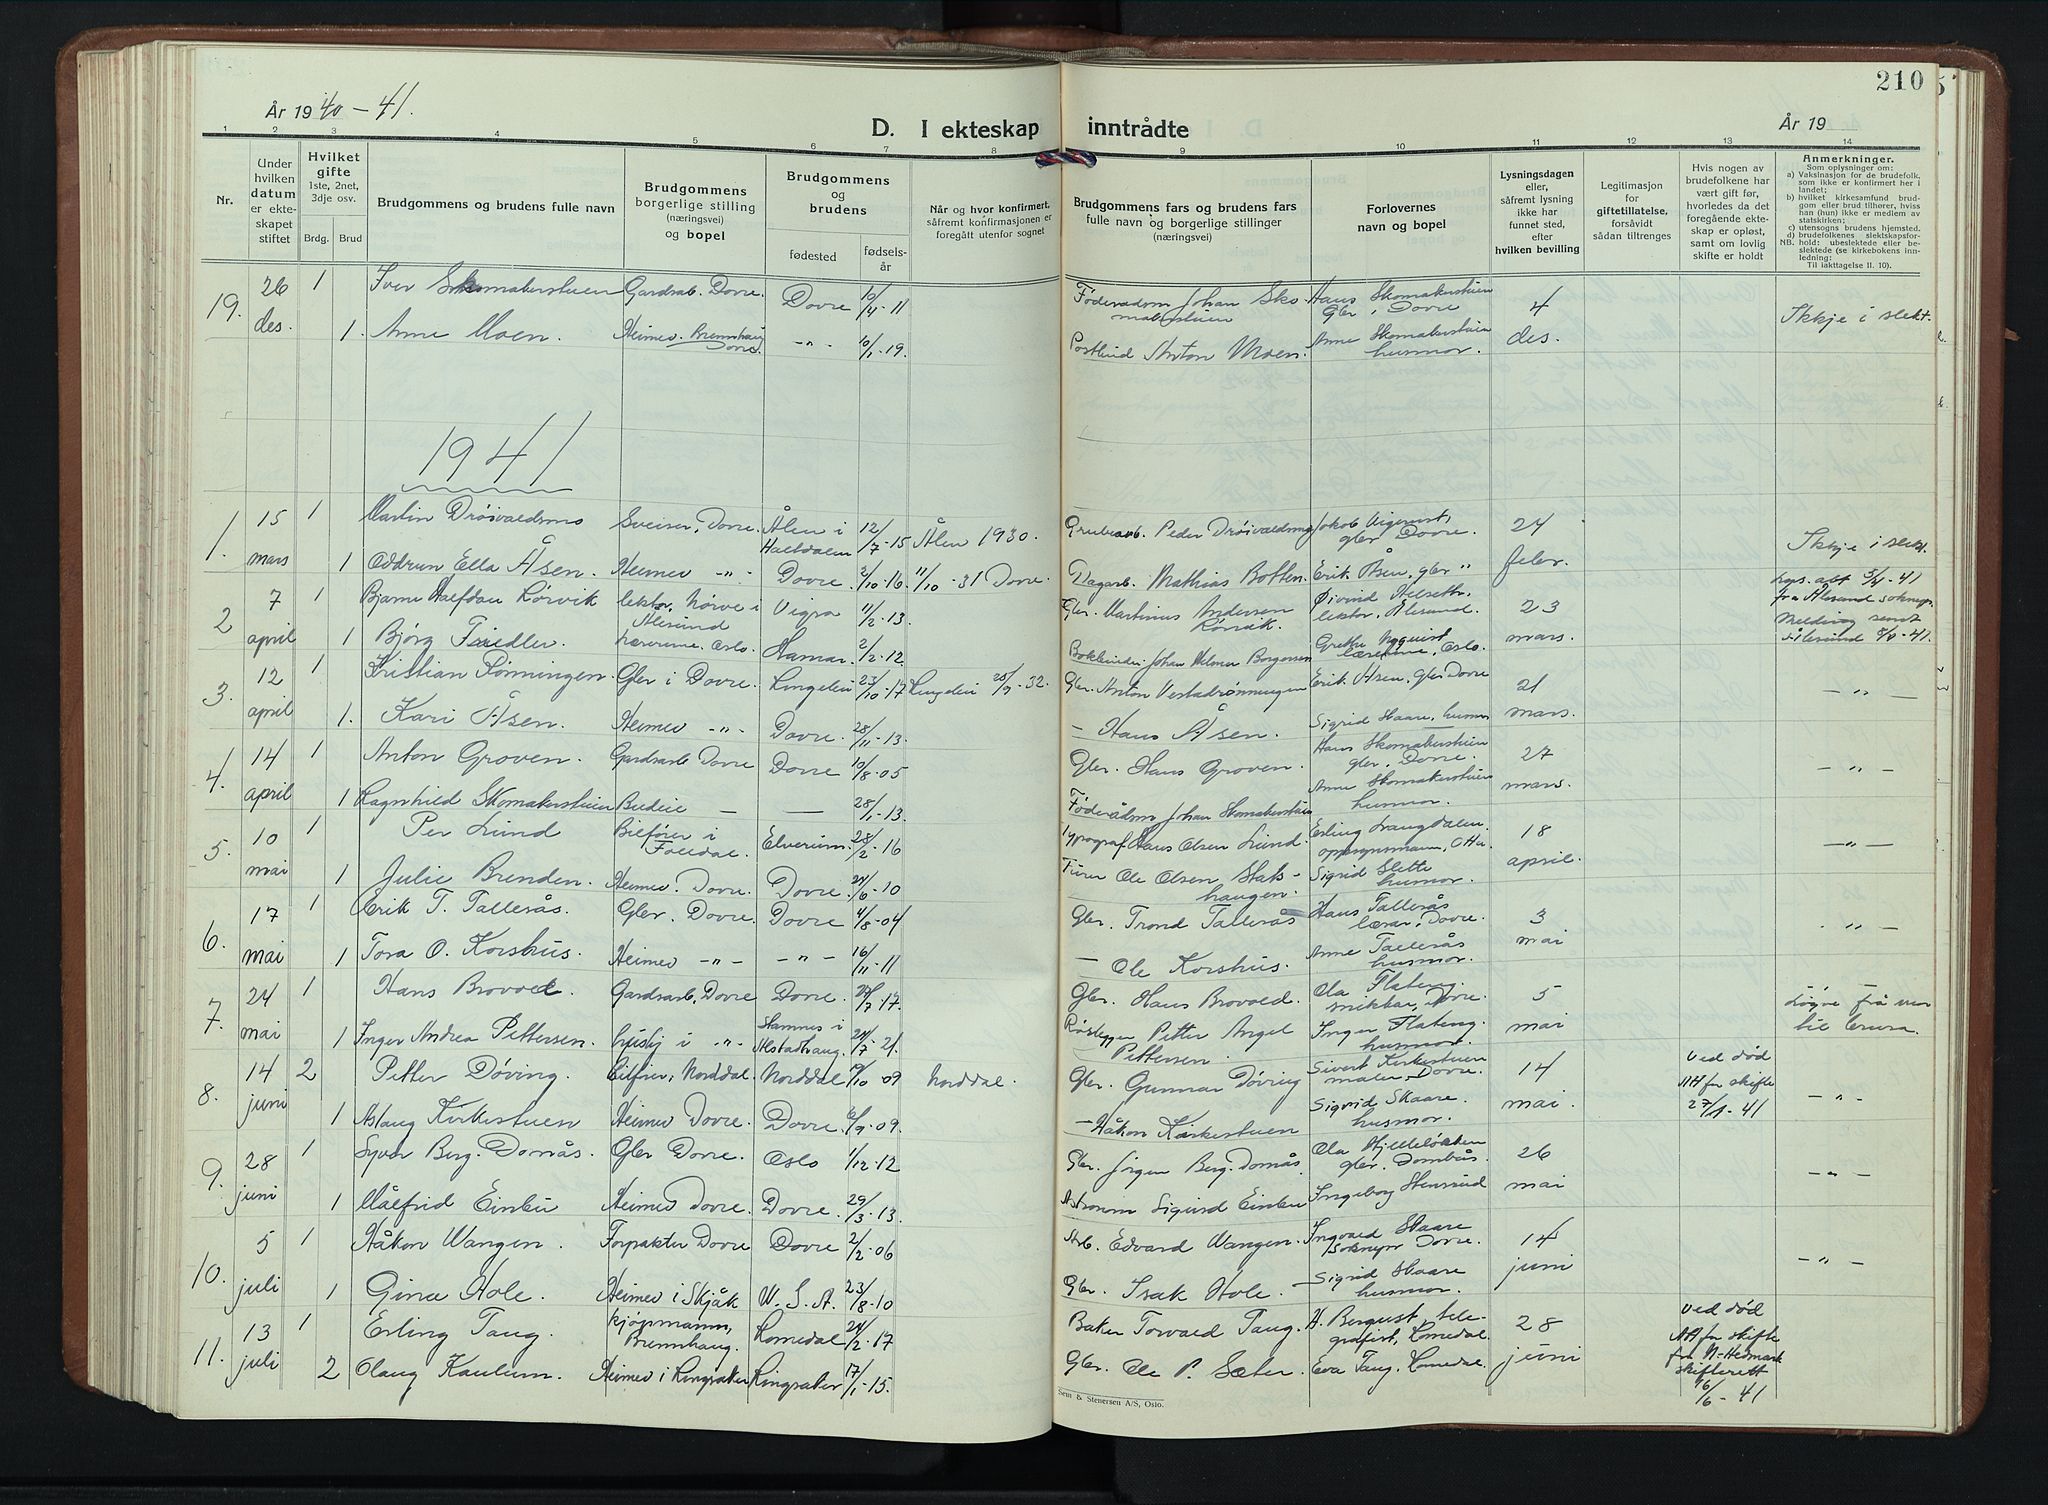 210
År 1940-41.
D. I ekteskap inntrådte
År 19
1 2 3 4 5 6 7 8 9 10 11 12 13 14
Nr.
Under hvilken datum er ekteskapet stiftet
Hvilket gifte 1ste, 2net, 3dje osv.
Brdg. Brud
Brudgommens og brudens fulle navn
Brudgommens borgerlige stilling (næringsvei) og bopel
Brudgommens og brudens
fødested
fødselsår
Når og hvor konfirmert, såfremt konfirmasjonen er foregått utenfor sognet
Brudgommens fars og brudens fars fulle navn og borgerlige stillinger (næringsvei)
Forlovernes navn og bopel
Lysningsdagen eller, såfremt lysning ikke har funnet sted, efter hvilken bevilling
Legitimasjon for giftetillatelse, forsåvidt sådan tiltrenges
Hvis nogen av brudefolkene har vært gift før, hvorledes da det foregående ekteskap er opløst, samt om lovlig skifte er holdt
Anmerkninger.
Som oplysninger om:
a) Vaksinasjon for de brudefolk, som ikke er konfirmert her i landet;
b) hvilket kirkesamfund brudgom eller brud tilhører, hviss han (hun) ikke er medlem av statskirken;
c) utensogns brudens hjemsted.
d) brudefolkenes slektskapsforhold: ubeslektede eller beslektede (se kirkebokens innledning:
NB.
Til iakttagelse II. 10).
19. 26 des. 1 Iver Skomakerstuen Gardsarb. Dovre. Dovre 10/4-11 Føderådsm. Johan Skomakerstuen Hans Skomakerstuen Gbr., Dovre 4 des. Ikkje i slekt.
1. Anne Moen. Heimev. Brennhaug Dovre. -"- 10/1-19. Postbud Anton Moen. Anne Skomakerstuen husmor.
1941
1. 15 mars 1 Martin Drøivoldsmo Sveiser, Dovre. Ålen i Haltdalen 12/7-15 Ålen 1930. Grubearb. Peder Drøivoldsmo Jakob gbr. Dovre. 24 febr. Ikkje i slekt.
1 Oddrun Ella Åsen. Heimev -"- Dovre. 2/10-16. 11/10-31 Dovre. Dagarb. Mathias Botten. Erik Åsen, gbr "
2 7 april 1 Bjarne Halfdan Rørvik lektor, Nørve i Ålesund Vigra 11/2-13. Gbr. Martinus Andersen Rørvik. Øivind lektor, Ålesund. 23 mars. 5/4-41 fra Ålesund sokneps. Melding sendt Ålesund 8/4-41.
1 Bjørg Fiedler lærerinne, Oslo. Hamar. 2/2-12 Bokbinder Johan Helmer Borgersen Grethe Nyquist lærerinne, Oslo.
3. 12 april 1 Kristian Rønningen. Gbr i Dovre. Ringebu 23/10-17 Ringebu 25/9-32. Gbr. Anton Vestadrønningen Erik Åsen, Gbr Dovre 21 mars. -"-
1. Kari Åsen. Heimev -"- Dovre. 28/11-13. - Hans Åsen. Sigrid Skaare, husmor
4. 14 april 1 Anton Groven. Gardsarb Dovre Dovre 10/8-05 Gbr. Hans Groven. Hans Skomakerstuen gbr, Dovre. 27 mars. -"-
1 Ragnhild Skomakerstuen Budeie - - 28/1-13. Føderådsm Johan Skomakerstuen Anne Skomakerstuen husmor.
5. 10 mai 1 Per Lund Bilfører i Folldal. Elverum. 28/2-16 Typograf Hans Olsen Lund. Erling Langdalen oppsynsmann, Otta 18 april. -"-
1 Julie Brenden. Heimev. Dovre. Dovre. 24/6-10 Furer Ole Olsen Stakshaugen. Sigrid Slette husmor.
6. 17 mai 1 Erik T. Tallerås. Gbr. Dovre Dovre 4/8-04 Gbr. Trond Tallerås Hans Tallerås lærar, Dovre. 3 mai -"-
1 Tora O. Korshus. Heimev -"- -"- 16/11-11 - Ole Korshus. Anne Tallerås husmor.
7. 24 mai 1 Hans Brovold. Gardsarb, Dovre Dovre. 24/7-17. Gbr. Hans Brovold. Ola Flateng. snikkar, Dovre. 5 mai
1 Inger Andrea Pettersen. hushj i -"- Stamnes i Alstadhaug. 24/7-21. Petter Angel Pettersen. Inger Flateng. husmor.
8. 14 juni 2 Petter Døving. Bilfører, Norddal. Norddal /10-09 Norddal. Gbr. Gunnar Døving Sivert Kirkestuen maler, Dovre. 14 mai. Ved død Att for skifte 27/1-41 -"-
1 Aslaug Kirkestuen Heimev Dovre. Dovre. 6/9-09. - Håkon Kirkestuen Sigrid Skaare. husmor.
9. 28 juni 1 Syver Berg-Domås. Gbr Dovre. Oslo 1/12-12 Gbr. Jørgen Berg-Domås Ola Hjelleløkken gbr. Dombås. 26 mai -"-
1 Målfrid Einbu Heimev Dovre. Dovre. 29/3-13. Astronom Sigurd Einbu Ingeborg Stensrud
10. 5 juli 1 Håkon Wangen. Forpakter Dovre Dovre 2/2-06 Arb. Edvard Wangen. Ingvald Skaare sokneprest Dovre. 14 juni -"-
1 Gina Hole. Heimev i Skjåk U. S. A. 23/8-10 Gbr. Isak Hole. Sigrid Skaare husmor.
11. 13 juli 1 Erling Taug. kjøpmann, Brennhaug. Romedal 24/2-17 Baker Torvald Taug. H. Bergust, telegrafist, Romedal. 28 juni Ved død Att for skifte fra N-Hedmark skifterett 16/6-41
2 Olaug Kaulum. Heimev i Ringsaker Ringsaker 17/1-15. Gbr. Ole P. Sæter. Eva Taug, Romedal.
Sem & Stenersen A/S, Oslo.